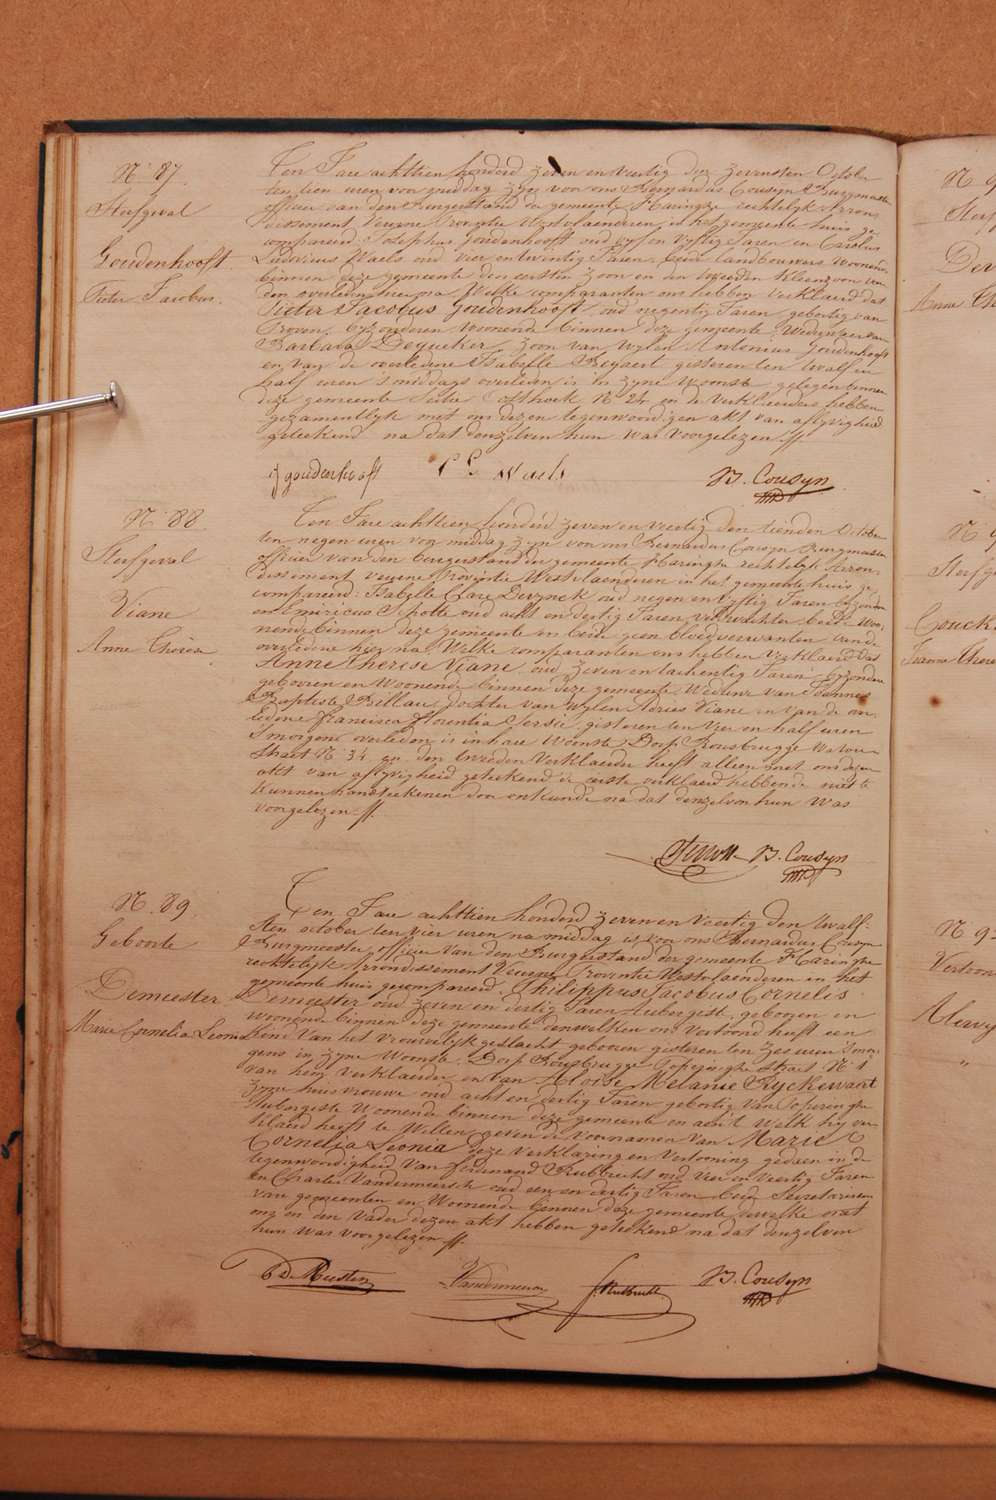 N° 87
Sterfgeval
Goudenhooft
Pieter Jacobus.
Ten Jare achttien honderd zeven en veertig den zevensten Octobr
ten tien uren voor middag zyn voor ons Bernardus Cousyn Burgmeester
officier van den Burgerstand der gemeente Haringhe rechtelyk Arron-
dissement Veurne Provintie Westvlaenderen in het gemeente huis ge-
compareerd: Josephus Goudenhooft oud vyf en vyftig Jaren en Carolus
Ludovicus Waels oud vier en twintig Jaren, beide landbouwers woonende
binnen deze gemeente den eersten zoon en den tweeden kleinzoon van
den overleden hier na. Welke comparanten ons hebben verklaerd dat
Pieter Jacobus Goudenhooft, oud negentig Jaren, geboortig van
Proven, byzonderen woonende binnen deze gemeente, Weduwaer van
Barbara Deqeucker, zoon van wylen Antonius Goudenhooft
en van de overledene Isabelle Rycaert gisteren ten twalf en
half uren 's middags overleden is in zyne Woonst gelegen binnen
deze gemeente Sectie Oosthoek N° 24 en de verklaerders hebben
gezamentlyk met ons dezen tegenwoordigen akt van aflyvigheid
geteekend na dat denzelven hun was voorgelezen.
ij goudenhooft C L Waels B. Cousyn
N° 88
Sterfgeval
Viane
Anne Theresa
Ten Jare achttien honderd zeven en veertig den tienden Octobr
ten negen uren voor middag zyn voor ons Bernardus Cousyn Burgmeester
officier van den burgerstand der gemeente Haringhe rechtelyk Arron-
dissement Veurne Provintie Westvlaenderen in het gemeente huis ge-
compareerd: Isabelle Clare Derynck oud negen en vyftig Jaren byzondere
en Emiricus Schotte oud acht en dertig Jaren, veldwachter beide woo-
nende binnen deze gemeente en beide geen bloedverwanten van de
overledene hier na. Welke comparanten ons hebben verklaerd dat
Anne Therese Viane oud zeven en tachentig Jaren, byzondere
gebooren en woonende binnen deze gemeente, Weduwe van Joannes
Baptiste Billau, dochter van wylen Adries Viane en van de over-
ledene Francisca Florentia Persie, gisteren ten vier en half uren
's morgens overleden is in hare Woonste Dorp Rousbrugge Watou-
straet N° 34 en den tweeden verklaerder heeft alleen met ons dezen
akt van aflyvigheid geteekend de eerste verklaerd hebbende niet te
kunnen handteekenen door onkunde na dat denzelven hun was
voorgelezen.
B. Cousyn
N° 89.
Geboorte
Demeester
Marie Cornelia Leonia
Ten Jare achttien honderd zeven en veertig den twalf-
sten october ten vier uren na middag is voor ons Bernardus Cousyn
Burgmeester, officier van den Burgerstand der gemeente Haringhe
rechtelyk Arrondissement Veurne Provintie Westvlaenderen in het
gemeente huis gecompareerd: Philippus Jacobus Cornelis
Demeester oud zeven en dertig Jaren, herbergist, geboren en
woonende binnen deze gemeente denwelken ons vertoond heeft een
kind van het vrouwelyk geslacht geboren gisteren ten zes uren 's mor-
gens in zyne Woonste Dorp Rousbrugge Poperinghe straet N° 1
van hem verklaerder en van Aloise Melanie Ryckewaert
zyne huisvrouwe oud acht en dertig Jaren gebortig van Poperinghe
Herbergiste woonende binnen deze gemeente en aen 't welk hy ver-
klaerd heeft te willen geven de voornamen van Marie
Cornelia Leonia deze verklaring en vertooning gedaen in de
tegenwoordigheid van Ferdinand Rubbrecht oud vier en veertig Jaren
en Charles Vandermeersch oud een en dertig Jaren beide Secretarissen
van gemeenten en woonende binnen deze gemeente dewelke met
ons en den vader dezen akt hebben geteekend na dat denzelven
hun was voorgelezen.
DeMeester Vandermeersch F. Rubbrecht B. Cousyn
N° 9
Sterfg
Der
Anne
N° 9
Sterfge
Couck
N° 9
Vertoon